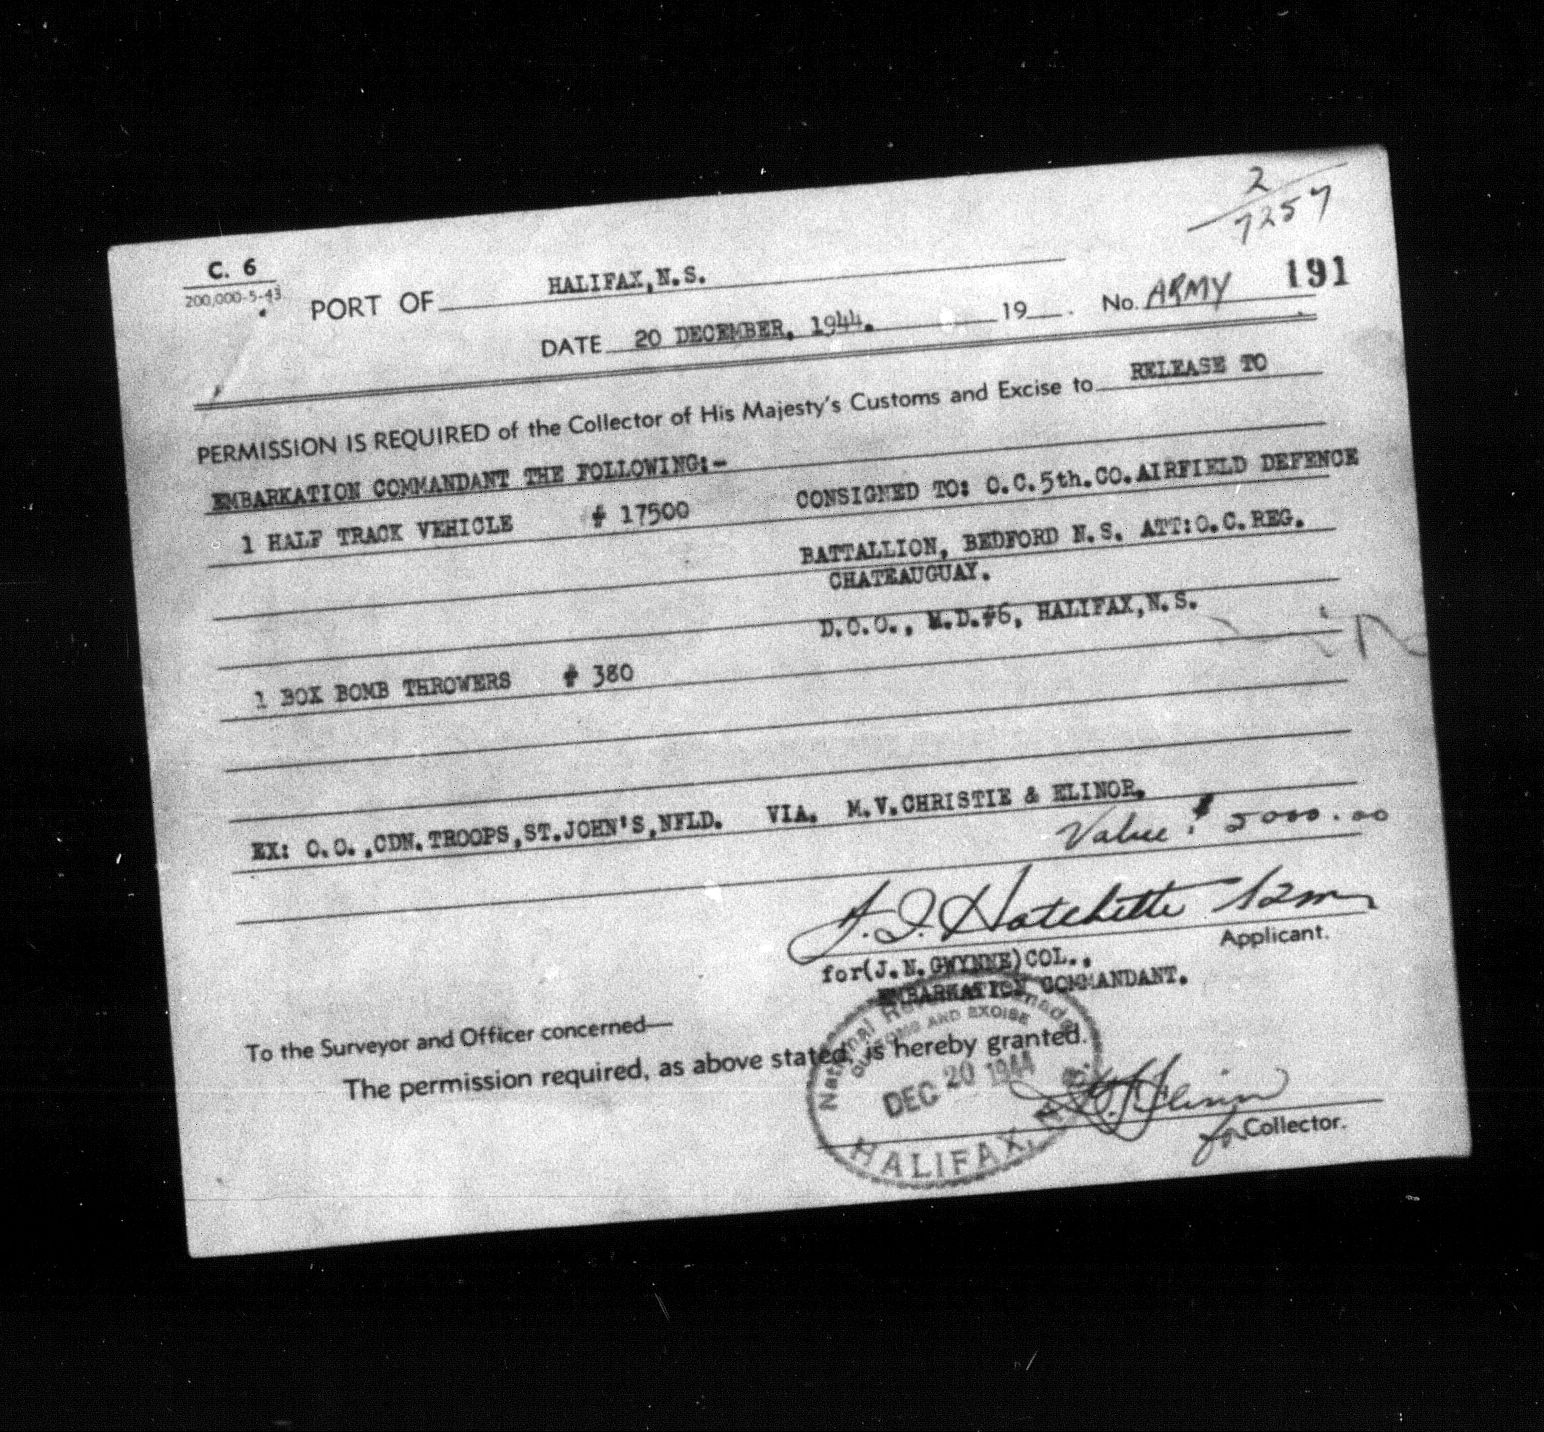 2
7257
C. 6
200,000-5-43
PORT OF HALIFAX,N.S.
No. ARMY 191
DATE 20 DECEMBER, 1944. 19
PERMISSION IS REQUIRED of the Collector of His Majesty's Customs and Excise to RELEASE TO
EMBARKATION COMMANDANT THE FOLLOWING:-
1 HALF TRACK VEHICLE # 17500 CONSIGNED TO: O.C.5th.CO.AIRFIELD DEFENCE
BATTALLION, BEDFORD N.S. ATT:O.C.REG.
CHATEAUGUAY.
D.O.O., M.D.#6, HALIFAX,N.S.
1 BOX BOMB THROWERS # 380
EX: O.O.,CDN.TROOPS,ST.JOHN'S,NFLD. VIA. M.V.CHRISTIE & ELINOR.
Value: $ 5000.00
Hatchette
Applicant.
for(J.N.GWYNNE)COL.,
EMBARKATION COMMANDANT.
To the Surveyor and Officer concerned—
The permission required, as above stated, is hereby granted.
National Revenue Canada
CUSTOMS AND EXCISE
DEC 20 1944
HALIFAX, N.S.
for Collector.